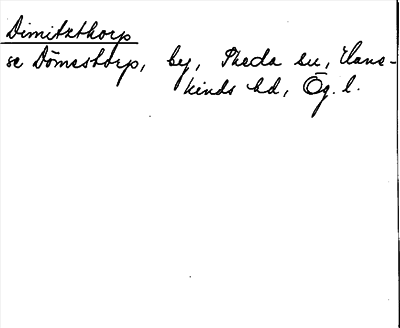 Dimitzthorp
se Dömestorp, by, Skeda sn, Hane-
kinds hd, Ög. l.